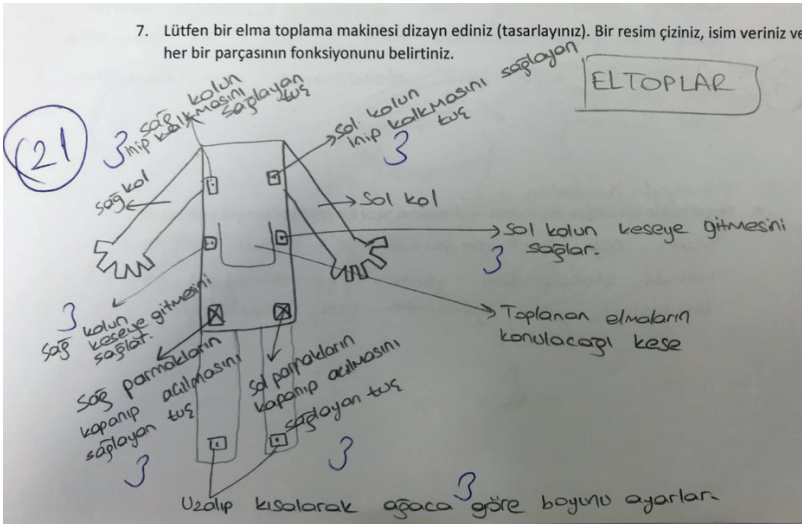 7. Lütfen bir elma toplama makinesi dizayn ediniz (tasarlayınız). Bir resim çiziniz, isim veriniz ve
her bir parçasının fonksiyonunu belirtiniz.
ELTOPLAR
21
sağ kolun
inip kalkmasını
sağlayan
tuş
3
Sol kolun
inip kalkmasını sağlayan
tuş
3
sağ kol
Sol kol
Sol kolun keseye gitmesini
sağlar.
3
3
sağ kolun
keseye gitmesini
sağlar.
Toplanan elmaların
konulacağı kese
sağ parmakların
kapanıp açılmasını
sağlayan tuş
3
Sol parmakların
kapanıp açılmasını
sağlayan tuş
3
3
Uzalıp kısalarak ağaca göre boyunu ayarlar.